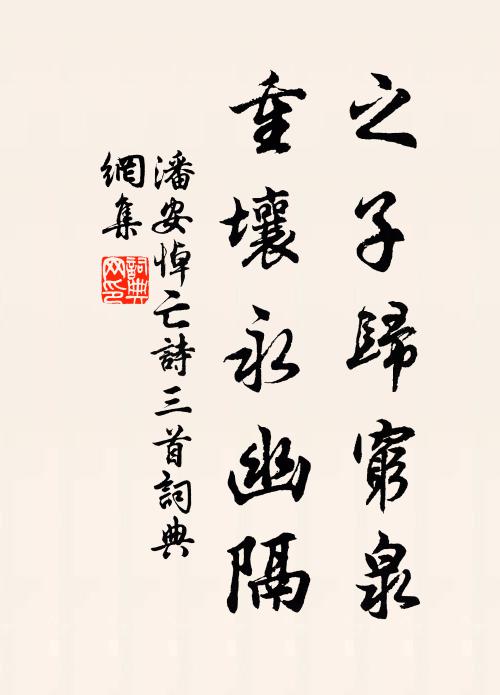 之子歸窮泉
重壤永幽隔
潘安悼亡詩三首詞典
網集
詞典網印